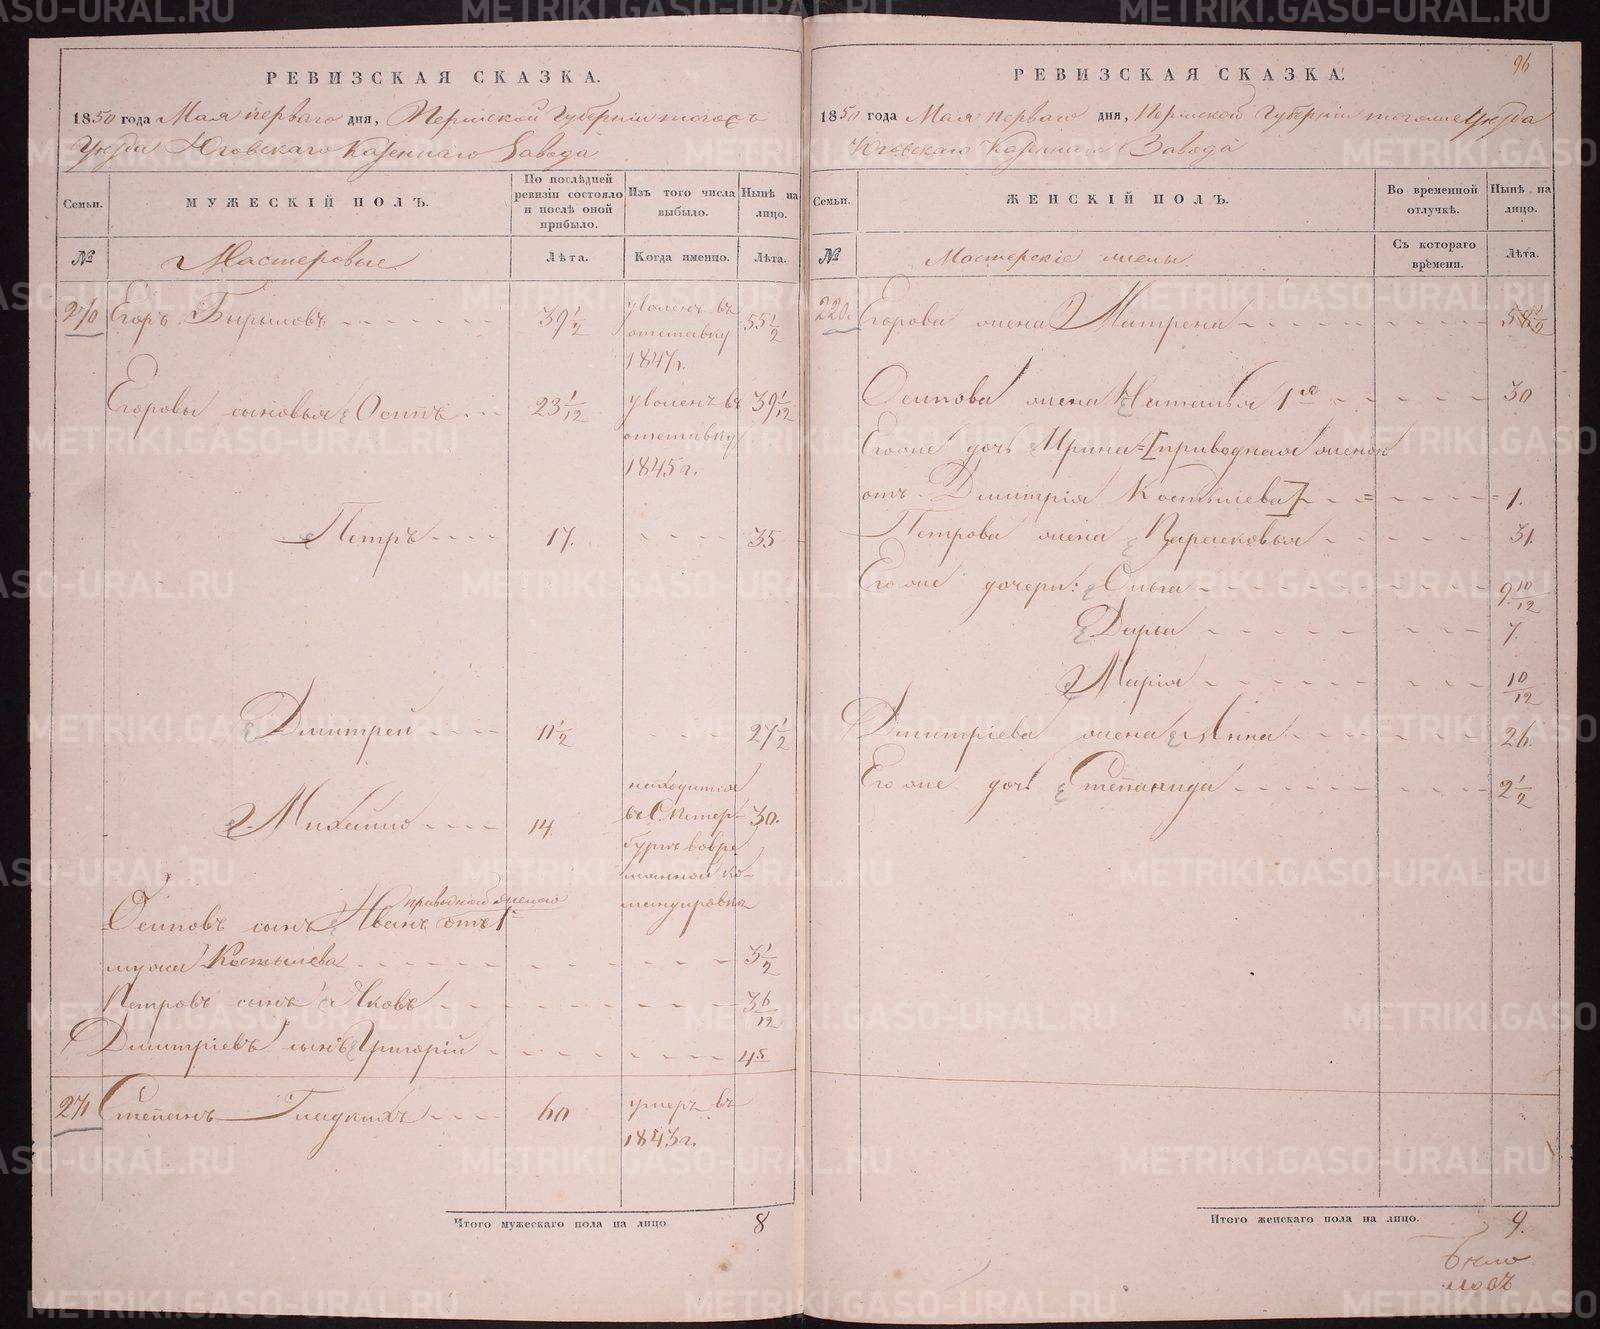 РЕВИЗСКАЯ СКАЗКА.
1850 года Мая перваго дня, Пермской Губерніи тогожъ
Уѣзда Юговскаго Казеннаго Завода
Семьи.
МУЖЕСКІЙ ПОЛЪ.
По послѣдней ревизіи состояло и послѣ оной прибыло.
Изъ того числа выбыло.
Нынѣ на лицо.
№
Мастеровые
Лѣта.
Когда именно.
Лѣта.
270 Егоръ Бырыловъ 39 1/2 уволенъ въ отставку 1847г. 55 1/2
Егоровы сыновья Осипъ 23 1/12 уволенъ въ отставку 1845г. 39 1/12
Петръ 17. 35
Дмитрей 11 1/2 27 1/2
Михайло 14. находится въ С.Петербургѣ во временной командировкѣ 30.
приводной женою
Осиповъ сынъ Иванъ отъ 1
мужа Костылева 3 1/2
Петровъ сынъ Яковъ 3 6/12
Дмитріевъ сынъ Григорій
271 Степанъ Гладкихъ 60 умеръ въ 1843г.
Итого мужескаго пола на лицо. 8
96
РЕВИЗСКАЯ СКАЗКА.
1850 года Мая перваго дня, Пермской Губерніи тогоже Уѣзда
Юговскаго Казеннаго Завода
Семьи.
ЖЕНСКІЙ ПОЛЪ.
Во временной отлучкѣ.
Нынѣ на лицо.
№
Мастерскіе жены
Съ котораго времени.
Лѣта.
Егорова жена Матрена
Осипова жена Наталья 1я 30
Егоже дочь Ирина [приводная женою
отъ Дмитрія Костылева] 1.
Петрова жена Парасковья 31.
Егоже дочери: Ольга 9 10/12
Дарья 7.
Марія 10/12
Дмитріева жена Анна 26.
Егоже дочь Степанида 2 1/2
Итого женскаго пола на лицо. 9.
METRIKI.GASO-URAL.RU